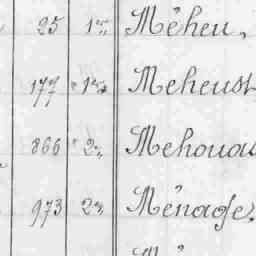 25 1er Méheu,
177 " 1er Meheust
866 " 2e Mehouas
973 2e Ménage,